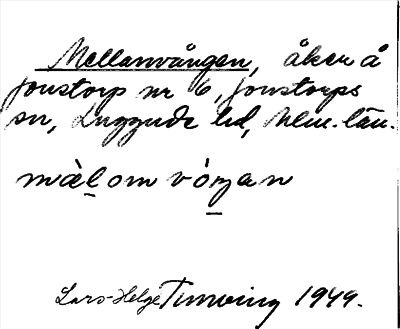 Mellanvången, åker å
Jonstorp nr 6, Jonstorps
sn, Luggude hd, Mlm. län.
màl̠om vóŋ̠an
Lars-Helge Tunving 1949.